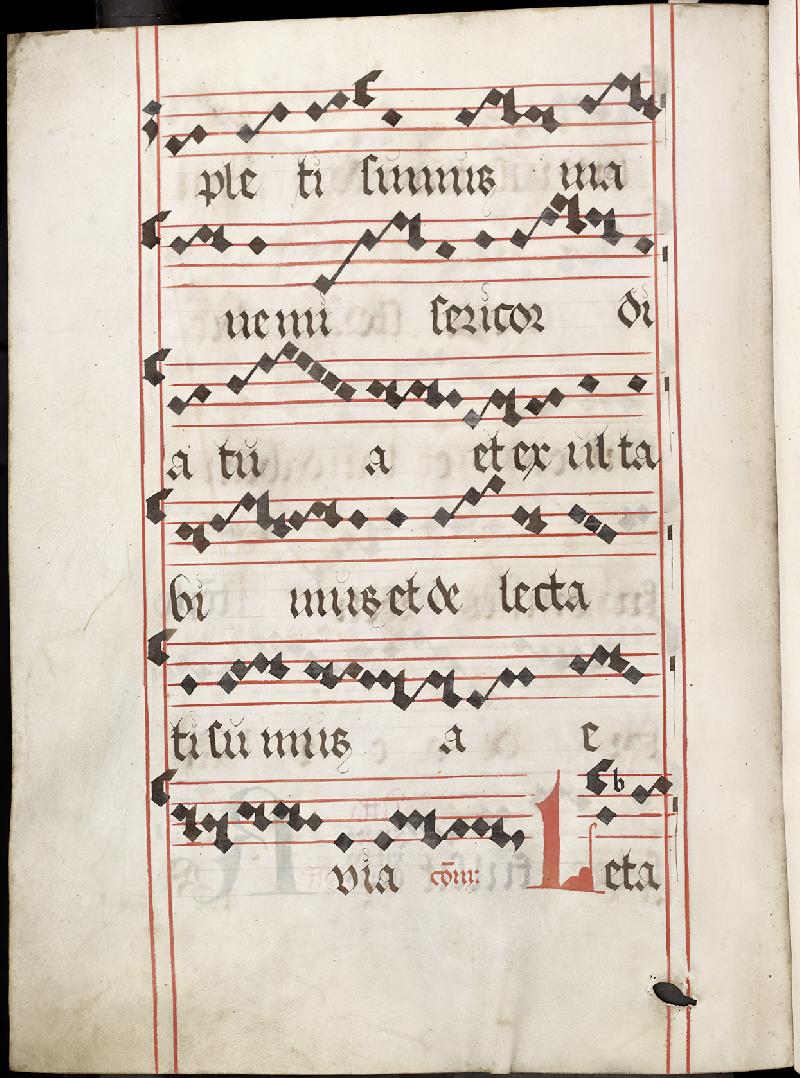 ple ti sumus ma
ne mi sericor di
a tu a et ex ul ta
bi mus et de lecta
ti su mus a e
via com̄: Leta